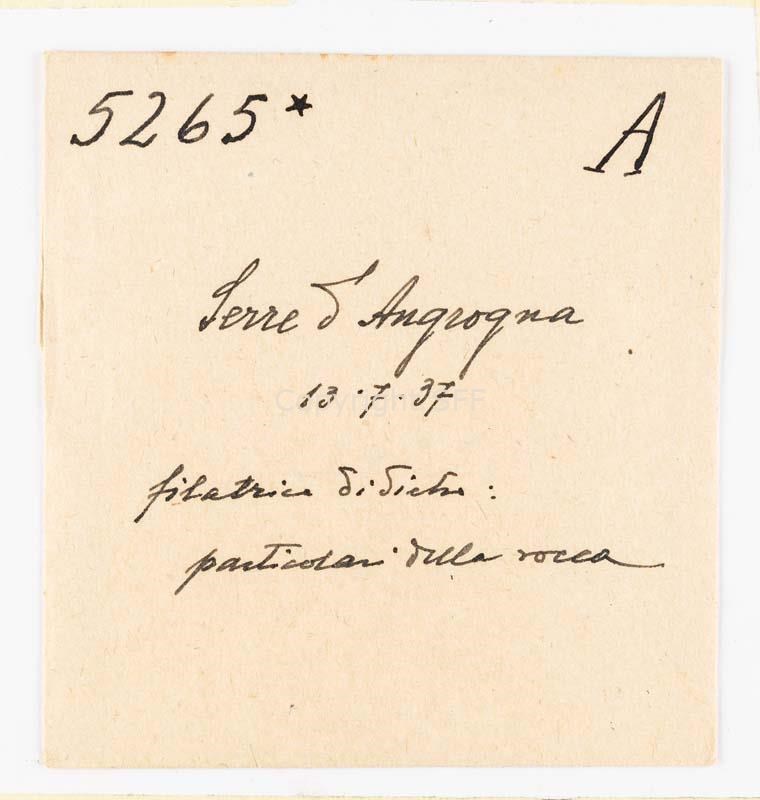 5265*
A
Serre d'Angrogna
13.7.37
filatrice di dietro:
particolari della rocca